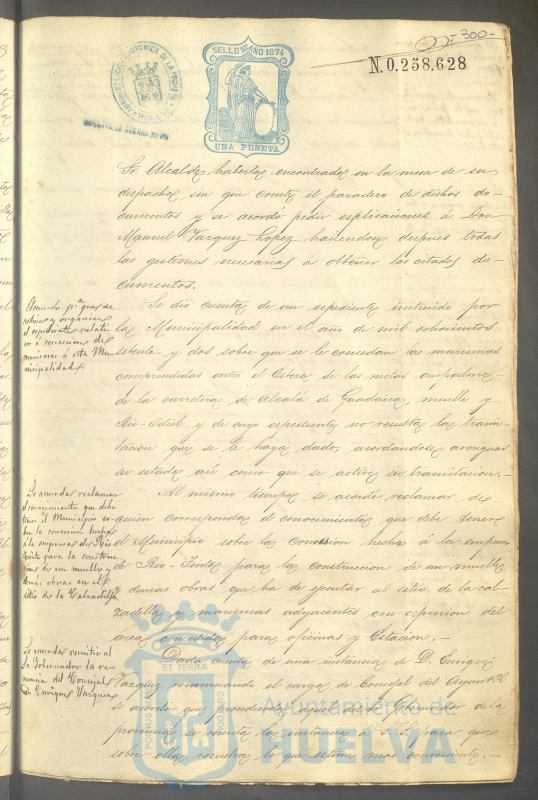 -300-
SELLO 10º AÑO 1874
N.0.258.628
UNA PESETA
Sr Alcalde haberlos encontrado en la mesa de su
despacho sin que conste el paradero de dichos do-
cumentos y se acordó pedir esplicaciones á Don
Manuel Vazquez Lopez haciendose despues todas
las gestiones necesarias á obtener los citados do-
cumentos.
Acuerdo pª que se
active y organice
el espediente relati-
vo á concesion de
marismas á esta Mu-
nicipalidad
Se dió cuenta de un espediente instruido por
la Municipalidad en el año de mil ochocientos
setenta y dos sobre que se le concedan las marismas
comprendidas entre el Estero de las metas empalme
de la carretera de Alcalá de Guadaira, muelle y
Rio-Odiel y de cuyo espediente no resulta la trami-
tacion que se le haya dado, acordandose averiguar
su estado asi como que se active su tramitacion.-
Se acuerda reclamar
el conocimiento que debe
tener el Municipio so-
bre la concesion hecha
á la empresa de Rio
Tinto para la construc-
cion de un muelle y
demás obras en el
sitio de la Calzadilla
Al mismo tiempo se acordó reclamar de
quien corresponda el conocimiento que debe tener
el Municipio sobre la Concesion hecha á la empresa
de Rio-Tinto para la construccion de un muelle
y demas obras que ha de ejecutar al sitio de la cal-
zadilla y marismas adyacentes con espresion del
area concedida para oficinas y Estacion.-
Se acuerda remitir al
Sr Gobernador la re-
nuncia del Concejal
D. Enrique Vazquez
Dada cuenta de una instancia de D. Enrique
Vazquez renunciando el cargo de Concejal del Ayunt.º
se acordó que precediendo venia del Sr Gobernador de la
provincia se remita la instancia á S.S. para que
sobre ella resuelva lo que estime mas conveniente.-
Ayuntamiento de
HUELVA